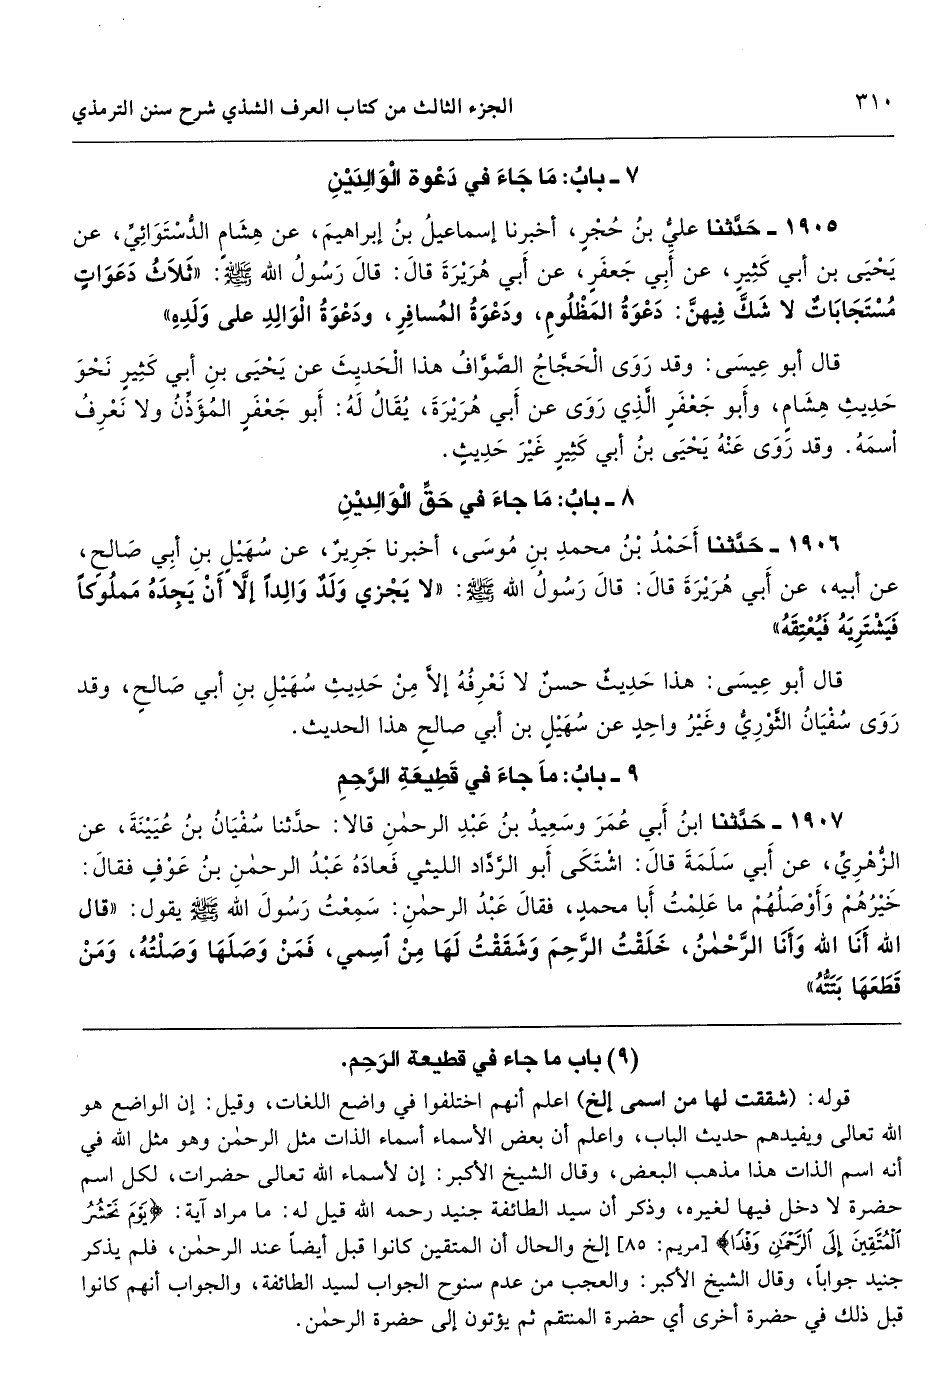 ٣١٠ الجزء الثالث من كتاب العرف الشذي شرح سنن الترمذي
٧ ـ بابُ: مَا جَاءَ في دَعْوة الْوَالِدَيْنِ
١٩٠٥ ـ حَدَّثنا عليُّ بنُ حُجْرٍ، أخبرنا إسماعيلُ بنُ إبراهيمَ، عن هِشَامٍ الدُّسْتَوائِيِّ، عن
يَحْيَى بن أبي كَثِيرٍ، عن أَبِي جَعفَرٍ، عن أَبي هُرَيْرَةَ قالَ: قالَ رَسُولُ الله ﷺ: «ثَلَاثُ دَعَوَاتٍ
مُسْتَجَابَاتٌ لا شَكَّ فِيهنَّ: دَعْوَةُ المَظْلُومِ، ودَعْوَةُ المُسافِرِ، ودَعْوَةُ الْوَالِدِ على وَلَدِهِ»
قال أبو عِيسَى: وقد رَوَى الْحَجَّاجُ الصَّوَّافُ هذا الْحَدِيثَ عن يَحْيَى بنِ أبي كَثِيرٍ نَحْوَ
حَدِيثِ هِشَامٍ، وأبو جَعْفَرٍ الَّذِي رَوَى عن أبي هُرَيْرَةَ، يُقَالُ لَهُ: أبو جَعْفَرٍ المُؤَذِّنُ ولا نَعْرِفُ
ٱسمَهُ. وقد رَوَى عَنْهُ يَحْيَى بنُ أبي كَثِيرٍ غَيْرَ حَدِيثٍ.
٨ ـ بابُ: مَا جاءَ في حَقِّ الْوَالِدَيْنِ
١٩٠٦ ـ حَدَّثنا أَحَمْدُ بْنُ محمدِ بنِ مُوسَى، أخبرنا جَرِيرٌ، عن سُهَيْلِ بنِ أبِي صَالحٍ،
عن أبيه، عن أَبي هُرَيْرَةَ قالَ: قالَ رَسُولُ الله ﷺ: «لا يَجْزي وَلَدٌ وَالِداً إلَّا أَنْ يَجِدَهُ مَملُوكاً
فَيَشْتَرِيَهُ فَيُعْتِقَهُ»
قال أبو عِيسَى: هذا حَدِيثٌ حسنٌ لا نَعْرِفُهُ إلاَّ مِنْ حَدِيثِ سُهَيْلِ بنِ أبي صَالحٍ، وقد
رَوَى سُفْيَانُ الثَّوْرِيُّ وغَيْرُ واحِدٍ عن سُهَيْلِ بن أبي صالحٍ هذا الحديث.
٩ ـ بابُ: ماَ جاءَ في قَطِيعَةِ الرَّحِمِ
١٩٠٧ ـ حَدَّثنا ابنُ أَبي عُمَرَ وسَعِيدُ بنُ عَبْدِ الرحمٰنِ قالا: حدَّثنا سُفْيَانُ بنُ عُيَيْنَةَ، عن
الزُّهْرِيِّ، عن أبي سَلَمَةَ قالَ: اشْتَكَى أبو الرَّدَّاد الليثي فَعادَهُ عَبْدُ الرحمٰنِ بنُ عَوْفٍ فقالَ:
خَيْرُهُمْ وَأَوْصَلُهُمْ ما عَلِمْتُ أبا محمدٍ، فقالَ عَبْدُ الرحمٰنِ: سَمِعْتُ رَسُولَ الله ﷺ يقول: «قال
الله أَنَا الله وَأَنَا الرَّحْمٰنُ، خَلَقْتُ الرَّحِمَ وَشَقَقْتُ لَهَا مِنْ ٱسِمي، فَمَنْ وَصَلَهَا وَصَلْتُهُ، وَمَنْ
قَطَعَهَا بَتَتُّهُ»
(٩) باب ما جاء في قطيعة الرَحِم.
قوله: (شققت لها من اسمى إلخ) اعلم أنهم اختلفوا في واضع اللغات، وقيل: إن الواضع هو
الله تعالى ويفيدهم حديث الباب، واعلم أن بعض الأسماء أسماء الذات مثل الرحمٰن وهو مثل الله في
أنه اسم الذات هذا مذهب البعض، وقال الشيخ الأكبر: إن لأسماء الله تعالى حضرات، لكل اسم
حضرة لا دخل فيها لغيره، وذكر أن سيد الطائفة جنيد رحمه الله قيل له: ما مراد آية: ﴿يَوْمَ نَحْشُرُ
ٱلْمُتَّقِينَ إِلَى ٱلرَّحْمَٰنِ وَفْدًا﴾ [مريم: ٨٥] إلخ والحال أن المتقين كانوا قبل أيضاً عند الرحمٰن، فلم يذكر
جنيد جواباً، وقال الشيخ الأكبر: والعجب من عدم سنوح الجواب لسيد الطائفة، والجواب أنهم كانوا
قبل ذلك في حضرة أخرى أي حضرة المنتقم ثم يؤتون إلى حضرة الرحمٰن.